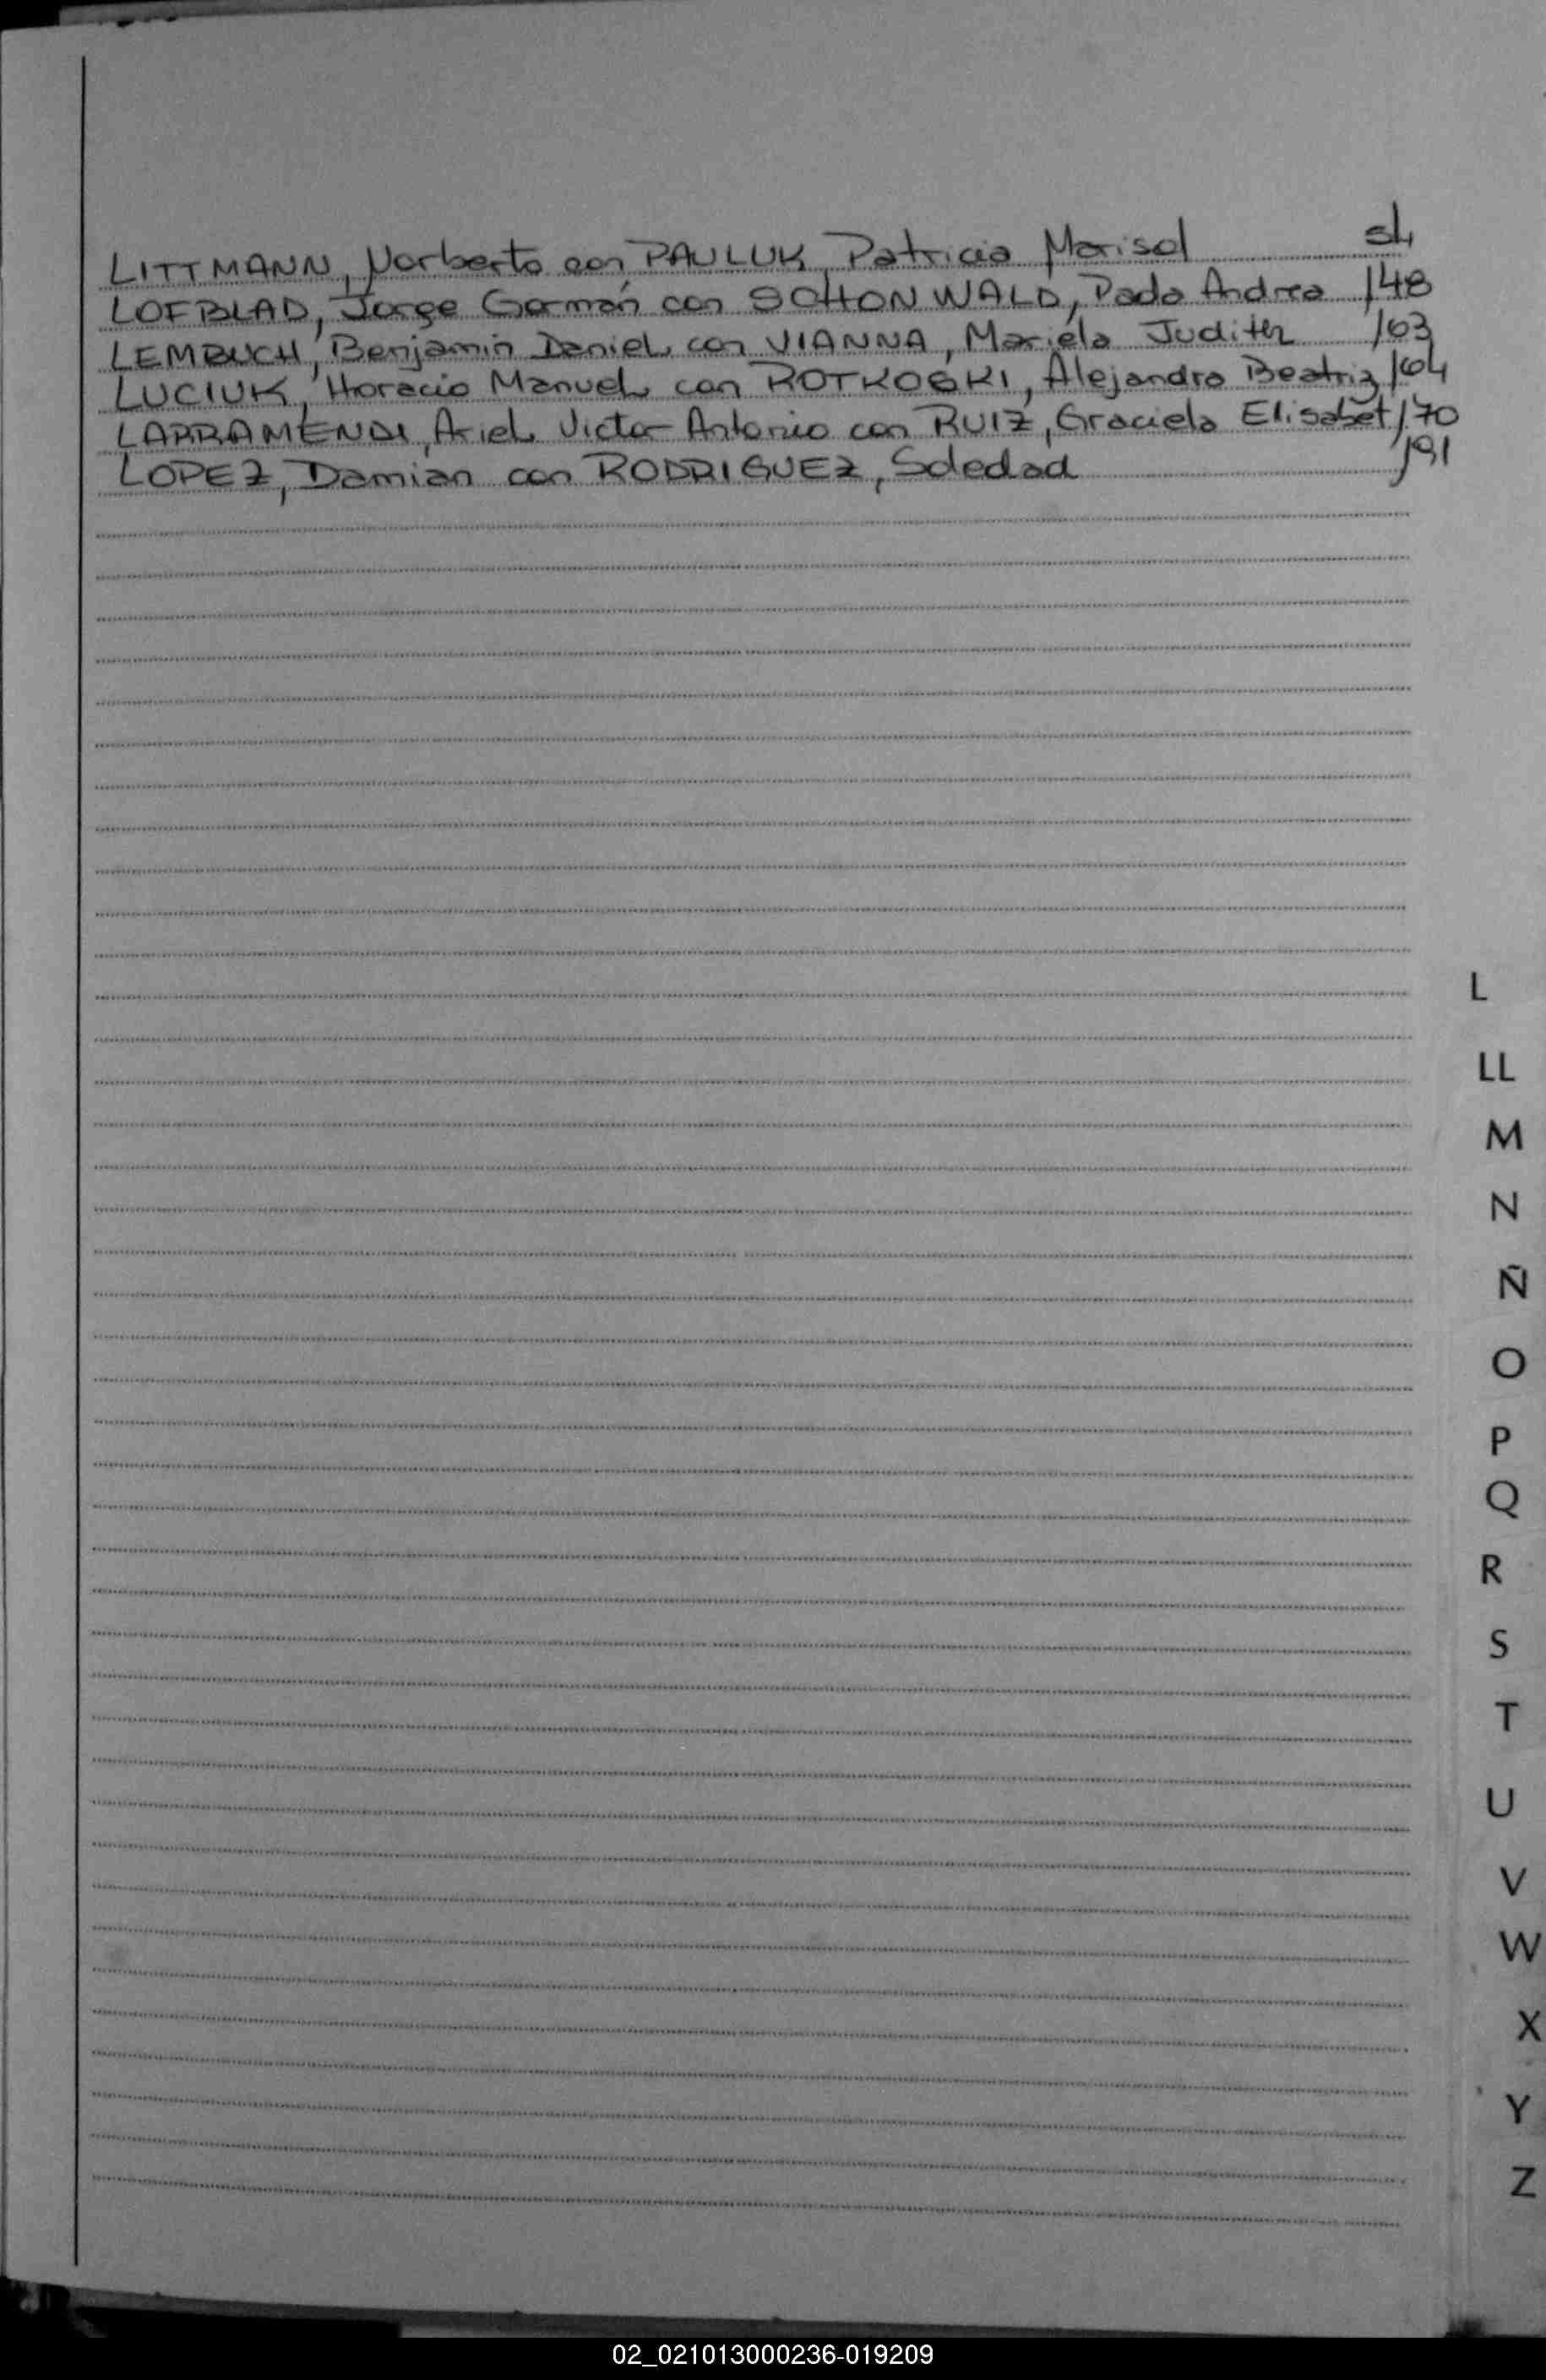 LITTMANN, Norberto con PAULUK, Patricia Marisol
LOFBLAD, Jorge German con SCHONWALD, Paola Andrea /48
LEMBUCH, Benjamin Daniel con VIANNA, Mariela Judith /63
LUCIUK, Horacio Manuel con ROTKOSKI, Alejandra Beatriz /64
LARRAMENDI, Ariel Victor Antonio con RUIZ, Graciela Elisabet /70
LOPEZ, Damian con RODRIGUEZ, Soledad /91
L
LL
M
N
Ñ
O
P
Q
R
S
T
U
V
W
X
Y
Z
02_021013000236-019209